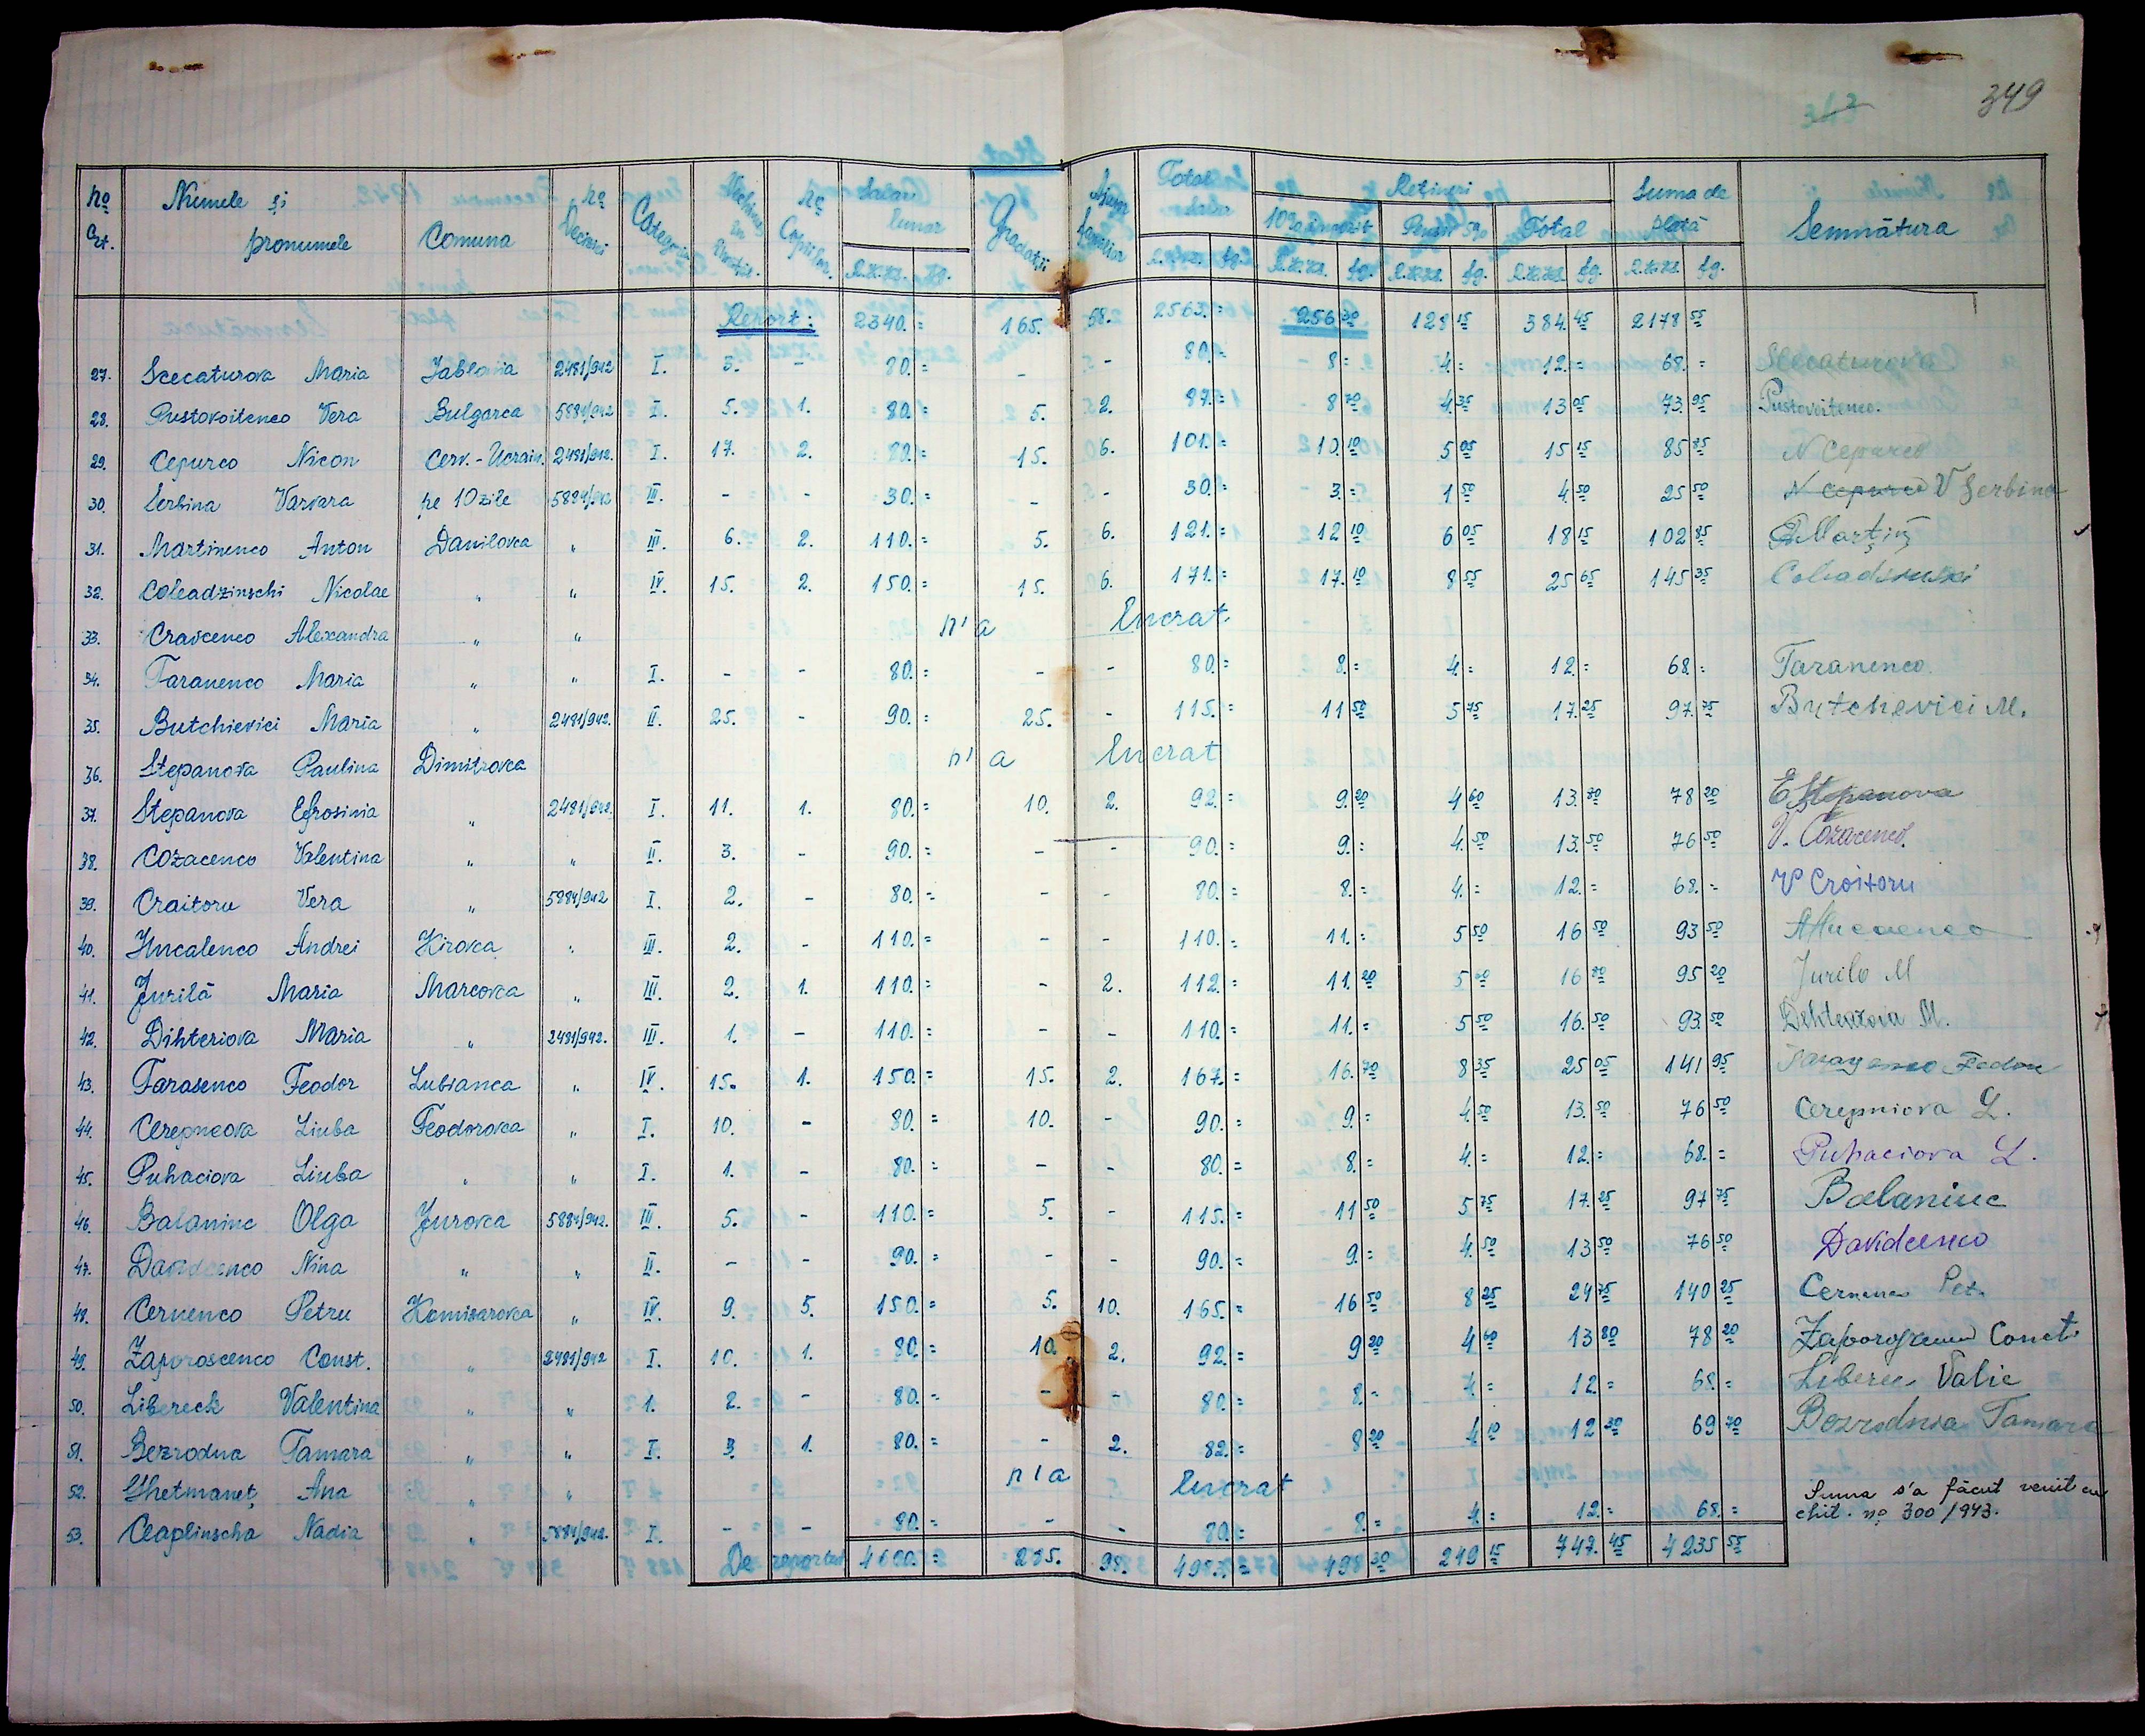 349
No Crt. Numele și pronumele Comuna No Deciziei Categoria Vechimea în No Copiilor Salar lunar R.K.K.S. fg. Gradații Ajutor familiar Total salar fg. Rețineri 10% impozit R.K.K.S. fg. Pensii 5% R.K.K.S. fg. Total R.K.K.S. fg. Suma de plată R.K.K.S. fg. Semnătura
Report: 2340.= 165. 58. 2563.= 256 30 128 15 384.45 2178 55
27. Scecaturova Maria Jablonia 2481/942 I. 3. - 80.= - - 80.= 8.= 4.= 12.= 68.= Scecaturova
28. Pustovoitenco Vera Bulgarca 5884/942 I. 5. 1. 80.= 5. 2. 87.= 8 70 4.35 13 05 73.95 Pustovoitenco.
29. Cepurco Nicon Cerv.-Ucrain. 2481/942. I. 17. 2. 80.= 15. 6. 101.= 10.10 5 05 15 15 85 85 N Cepurco
30. Serbina Varvara pe 10 zile 5884/942 III. - - 30.= - - 30.= 3.= 1 50 4.50 25 50 N Cepurco V Serbina
31. Martinenco Anton Danilovca " III. 6. 2. 110.= 5. 6. 121.= 12 10 6 05 18 15 102 85
32. Coleadzinschi Nicolae " " IV. 15. 2. 150.= 15. 6. 171.= 17.10 8 55 25 65 145 35 Coleadzinschi
33. Cravcenco Alexandra " " n'a lucrat.
34. Taranenco Maria " " I. - - 80.= - - 80.= 8.= 4.= 12.= 68.= Taranenco
35. Butchievici Maria " 2481/942. II. 25. - 90.= 25. - 115.= 11 50 5 75 17.25 97.75 Butchevici M.
36. Stepanova Paulina Dimitrovca n'a lucrat
37. Stepanova Efrosinia " 2481/942. I. 11. 1. 80.= 10. 2. 92.= 9.20 4 60 13.80 78 20 E Stepanova
38. Cozacenco Valentina " " II. 3. - 90.= - - 90.= 9.= 4.50 13.50 76 50 V. Cozacenco.
39. Craitoru Vera " 5884/942 I. 2. - 80.= - - 80.= 8.= 4.= 12.= 68.= V Croitoru
40. Hucalenco Andrei Kirovca " III. 2. - 110.= - - 110.= 11.= 5 50 16 50 93 50
41. Jurilă Maria Marcovca " III. 2. 1. 110.= - 2. 112.= 11.20 5 60 16 80 95 20 Jurilo M
42. Dihteriova Maria " 2481/942. III. 1. - 110.= - - 110.= 11.= 5 50 16.50 93.50 Dihteriova M.
43. Tarasenco Feodor Lubianca " IV. 15. 1. 150.= 15. 2. 167.= 16.70 8 35 25 05 141 95 Tarasenco Fedor
44. Cerepneova Liuba Feodorovca " I. 10. - 80.= 10. - 90.= 9.= 4.50 13.50 76 50 Cerepniova L.
45. Puhaciova Liuba " " I. 1. - 80.= - - 80.= 8.= 4.= 12.= 68.= Puhaciova L.
46. Balaniuc Olga Jurovca 5884/942. III. 5. - 110.= 5. - 115.= 11 50 5 75 17.25 97 75 Balaniuc
47. Davidcenco Nina " " II. - - 90.= - - 90.= 9.= 4.50 13 50 76 50 Davidcenco
48. Cernenco Petru Komisarovca " IV. 9. 5. 150.= 5. 10. 165.= 16 50 8 25 24 75 140 25 Cernenco Pet.
49. Zaporoscenco Const. " 2481/942 I. 10. 1. 80.= 10. 2. 92.= 9 20 4 60 13 80 78 20 Const.
50. Libereck Valentina " " 1. 2. - 80.= - - 80.= 8.= 4.= 12.= 68.= Valie
51. Bezrodna Tamara " " I. 3. 1. 80.= - 2. 82.= 8 20 4 10 12 30 69 70 Bezrodnia Tamara
52. Ghetmaneț Ana " " n'a lucrat
53. Ceaplinscha Nadia " 5884/942. I. - - 80.= - - 80.= 8.= 4.= 12.= 68.= Suma s'a făcut venit cu
chit. no 300/1943.
De reportat 4600.= 285. 98. 4983.= 498 30 249 15 747.45 4235 55